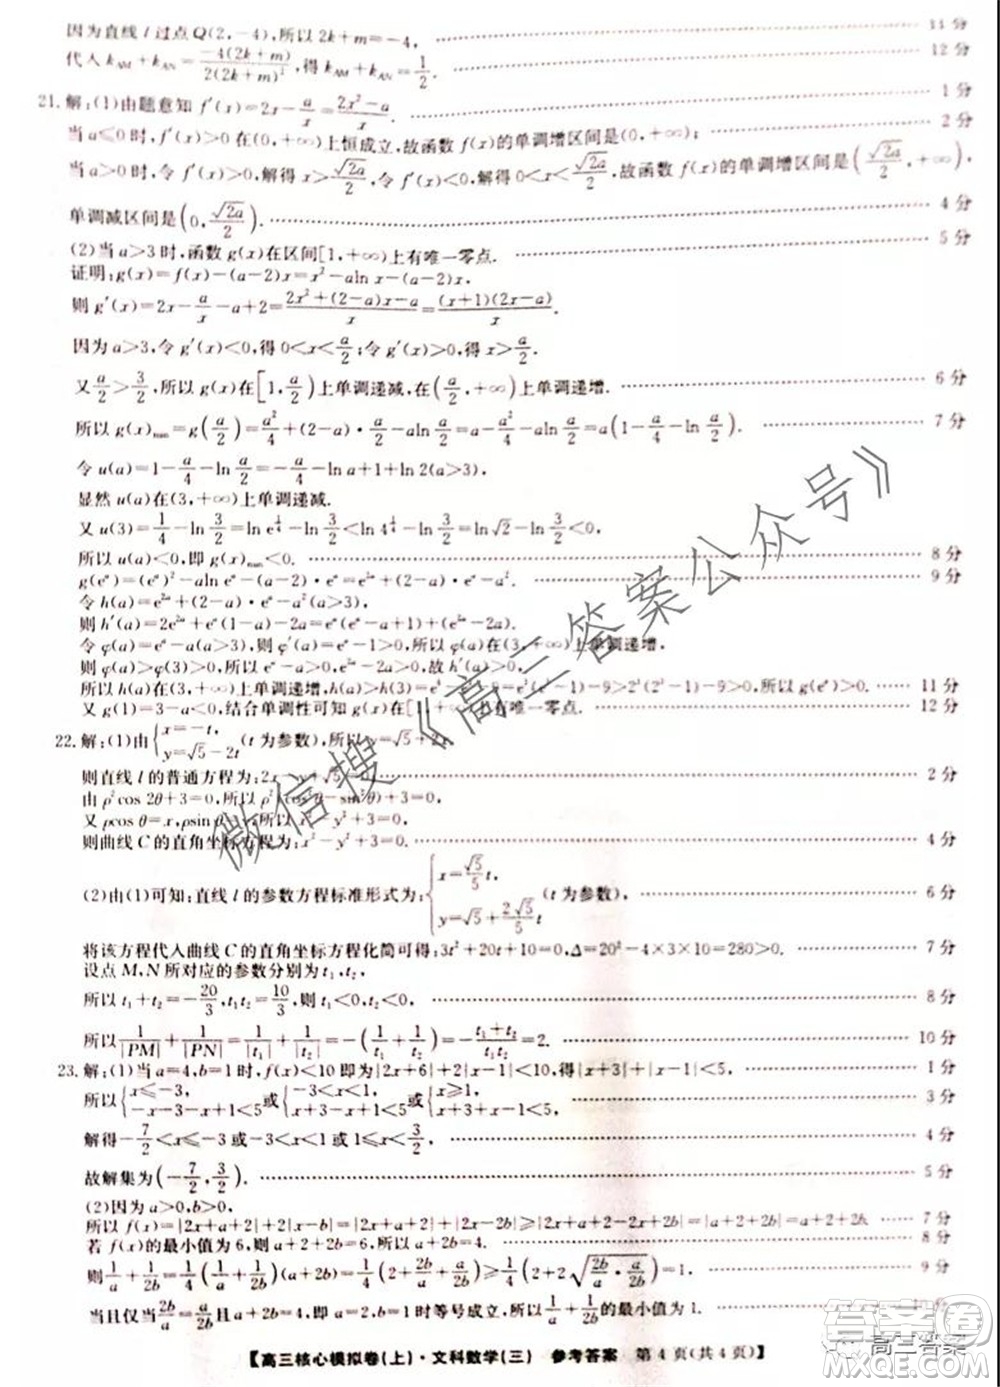 因为直线 l 过点 Q(2,-4),所以 2k+m=-4, 11 分
代入 k_AM+k_AN=-4(2k+m)/2(2k+m)²,得 k_AM+k_AN=1/2. 12 分
21.解:(1)由题意知 f′(x)=2x-a/x=(2x²-a)/x. 1 分
当 a≤0 时,f′(x)>0 在(0,+∞)上恒成立,故函数 f(x)的单调增区间是(0,+∞); 2 分
当 a>0 时,令 f′(x)>0,解得 x>√(2a)/2,令 f′(x)<0,解得 0<x<√(2a)/2,故函数 f(x)的单调增区间是(√(2a)/2,+∞),
单调减区间是(0,√(2a)/2). 4 分
(2)当 a>3 时,函数 g(x)在区间[1,+∞)上有唯一零点. 5 分
证明:g(x)=f(x)-(a-2)x=x²-aln x-(a-2)x,
则 g′(x)=2x-a/x-a+2=(2x²+(2-a)x-a)/x=(x+1)(2x-a)/x.
因为 a>3,令 g′(x)<0,得 0<x<a/2;令 g′(x)>0,得 x>a/2.
又 a/2>3/2,所以 g(x)在[1,a/2)上单调递减,在(a/2,+∞)上单调递增. 6 分
所以 g(x)min=g(a/2)=a-a²/4-aln a/2=a(1-a/4-ln a/2). 7 分
令 u(a)=1-a/4-ln a/2=-a/4-ln a+1+ln 2(a>3),
显然 u(a)在(3,+∞)上单调递减.
又 u(3)=1/4-ln 3/2=ln e^(1/4)-ln 3/2<ln 4^(1/4)-ln 3/2=ln√2-ln 3/2<0,
所以 u(a)<0,即 g(x)min<0. 8 分
9 分
所以 g(eᵃ)>0. 11 分
又 g(1)=3-a<0,结合单调性可知 g(x)在[1,+∞)上有唯一零点. 12 分
22.解:(1)由{x=-t, y=√5-2t (t 为参数),得 y=√5+2x,
则直线 l 的普通方程为:2x-y+√5=0. 2 分
由 ρ²cos 2θ+3=0,所以 ρ²(cos²θ-sin²θ)+3=0,
所以 x²-y²+3=0.
则曲线 C 的直角坐标方程为:x²-y²+3=0. 4 分
(2)由(1)可知:直线 l 的参数方程标准形式为:{x=√5/5 t, y=√5+2√5/5 t (t 为参数), 6 分
将该方程代入曲线 C 的直角坐标方程化简可得:3t²+20t+10=0,Δ=20²-4×3×10=280>0. 7 分
设点 M,N 所对应的参数分别为 t₁,t₂,
所以 t₁+t₂=-20/3,t₁t₂=10/3,则 t₁<0,t₂<0, 8 分
所以 1/|PM|+1/|PN|=1/|t₁|+1/|t₂|=-(1/t₁+1/t₂)=-(t₁+t₂)/(t₁t₂)=2. 10 分
23.解:(1)当 a=4,b=1 时,f(x)<10 即为|2x+6|+2|x-1|<10,得|x+3|+|x-1|<5, 1 分
所以{x≤-3, -x-3-x+1<5 或{-3<x<1, x+3-x+1<5 或{x≥1, x+3+x-1<5, 3 分
解得-7/2<x≤-3 或-3<x<1 或 1≤x<3/2, 4 分
故解集为(-7/2,3/2). 5 分
(2)因为 a>0,b>0,
所以 f(x)=|2x+a+2|+2|x-b|=|2x+a+2|+|2x-2b|≥|2x+a+2-(2x-2b)|=|a+2+2b|=a+2+2b, 7 分
若 f(x)的最小值为 6,则 a+2+2b=6,所以 a+2b=4. 8 分
则 1/a+1/2b=1/4(1/a+1/2b)(a+2b)=1/4(2+2b/a+a/2b)≥1/4(2+2√(2b/a·a/2b))=1, 9 分
当且仅当 2b/a=a/2b=1,即 a=2,b=1 时等号成立,所以 1/a+1/2b 的最小值为 1.
【高三核心模拟卷(上)·文科数学(三) 参考答案 第 4 页(共 4 页)】
微信搜《高三答案公众号》
答案圈
高三答案